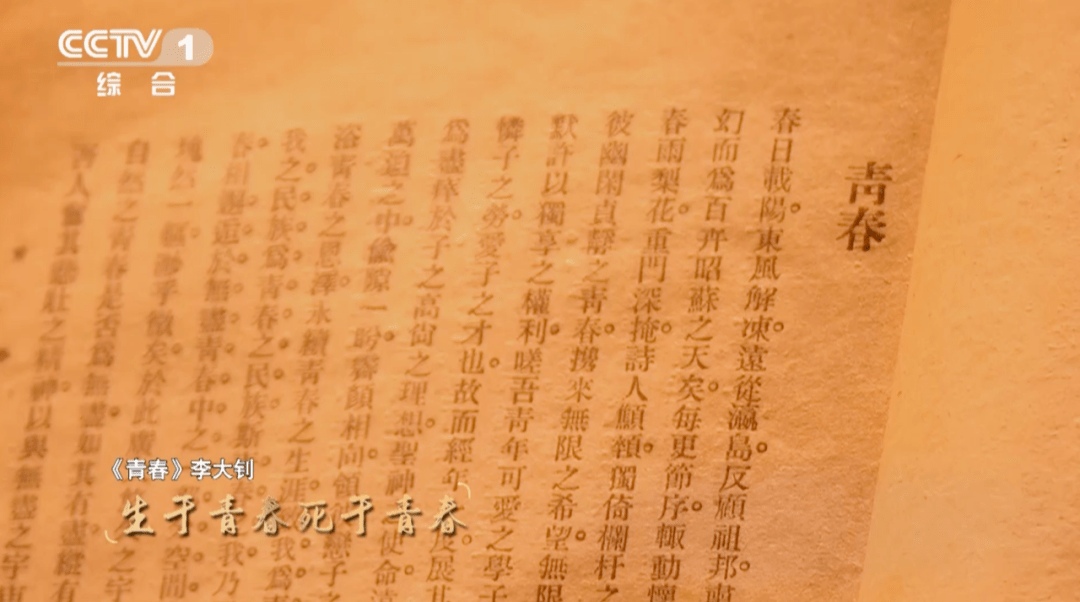 CCTV 1
综合
靑春
春日載陽。東風解凍。遠從瀛島。反顧祖邦。
幻而爲百卉昭蘇之天矣。每更節序。輒動懷
春雨梨花。重門深掩。詩人顦顇。獨倚欄杆之
彼幽閑貞靜之靑春。攜來無限之希望。無限
默許以獨享之權利。嗟吾靑年可愛之學子
憐子之勞。愛子之才也。故而經年
爲盡瘁於子之高尙之理想。聖神之使命。遠
之中。一 顏相向。領 戀子之
浴靑春之恩澤。永續靑春之生涯。我爲
我之民族爲靑春之民族。斯 我乃
春相邂逅於無盡靑春中之 空間
塊然一軀 乎微矣。於此
自然之靑春是否爲無盡。如其有盡。縱有
吾人奮其悲壯之精神。以與無盡之宇宙
《青春》李大钊
生于青春死于青春